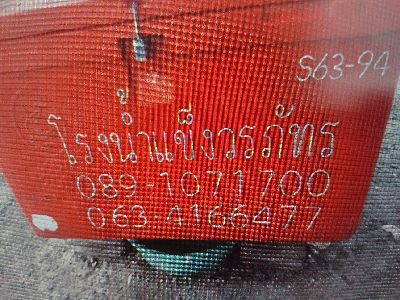 S63-94
โรงน้ำแข็งวรภัทร
089-1071700
063-4166477